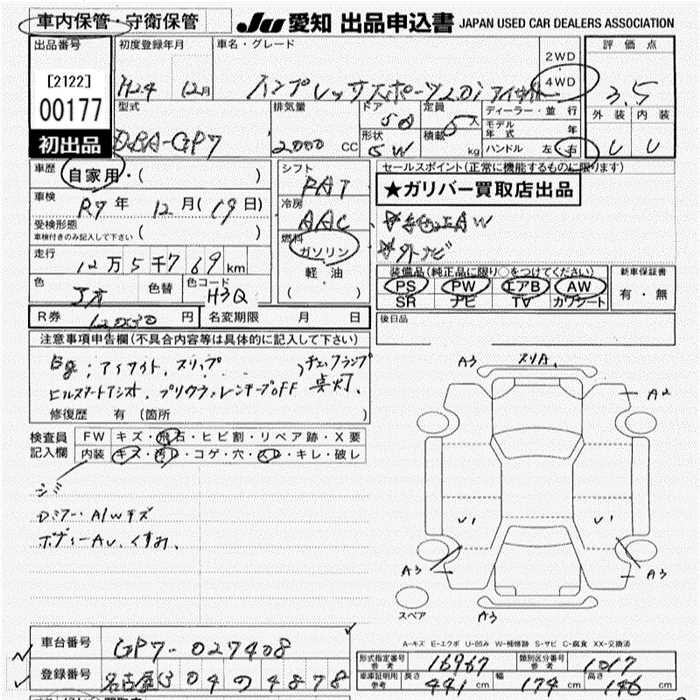 車内保管・守衛保管 JU 愛知 出品申込書 JAPAN USED CAR DEALERS ASSOCIATION
出品番号 初度登録年月 車名・グレード 2WD 4WD 評価点
[2122] H24 12月 インプレッサスポーツ2.0i アイサイト 3.5
00177 型式 排気量 ドア 定員 ディーラー・並行 外装 内装
初出品 DBA-GP7 2000 CC 5D 5人 モデル年式 年
形状 5W 積載 kg ハンドル 左・右
車歴 自家用・( ) シフト FAT セールスポイント(正常に機能するものに限ります)
車検 R7年 12月(19日) 冷房 AAC ★ガリバー買取店出品
受検形態
車検付きのみ記入して下さい ( ) 燃料 ガソリン
☆外ナビ
走行 12万5千769km 軽油 装備品(純正品に限り○をつけてください) 新車保証書
PS PW エアB AW 有・無
色 色替 色コード H3Q ( ) SR ナビ TV カワシート
R券 円 名変期限 月 日 後日品
注意事項申告欄(不具合内容等は具体的に記入して下さい)
アイサイト、スリップ チェックランプ
ヒルスタートアシスト、プリクラッシュブレーキ OFF 点灯、
修復歴 有 (箇所 )
検査員記入欄 FW キズ・飛石・ヒビ割・リペア跡・X要
内装 キズ・汚レ・コゲ・穴・スレ・キレ・破レ
シミ
Dミラー・A/Wキズ
ボディーAU、くすみ、
A3 スリA A2
U1 U1
A3 A3
スペア A3
A-キズ E-エクボ U-凹み W-補修跡 S-サビ C-腐食 XX-交換済
車台番号 GP7-027408
形式指定番号 参考 16967 類別区分番号 参考 1017
登録番号 名古屋 304 の 4878
車庫証明用 参考 長さ 441cm 幅 174cm 高さ 146cm